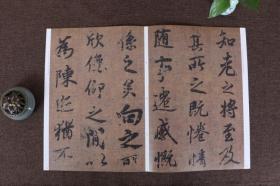 知老之将至及
其所之既惓情
随事迁感慨
係之矣向之所
欣俛仰之间以
為陳迹猶不